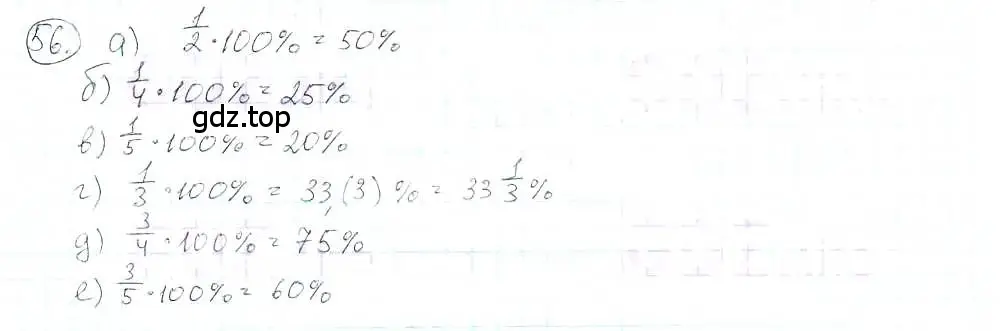 56. а) 1/2 · 100% = 50%
б) 1/4 · 100% = 25%
gdz.top
в) 1/5 · 100% = 20%
г) 1/3 · 100% = 33,(3)% = 33 1/3 %
д) 3/4 · 100% = 75%
е) 3/5 · 100% = 60%